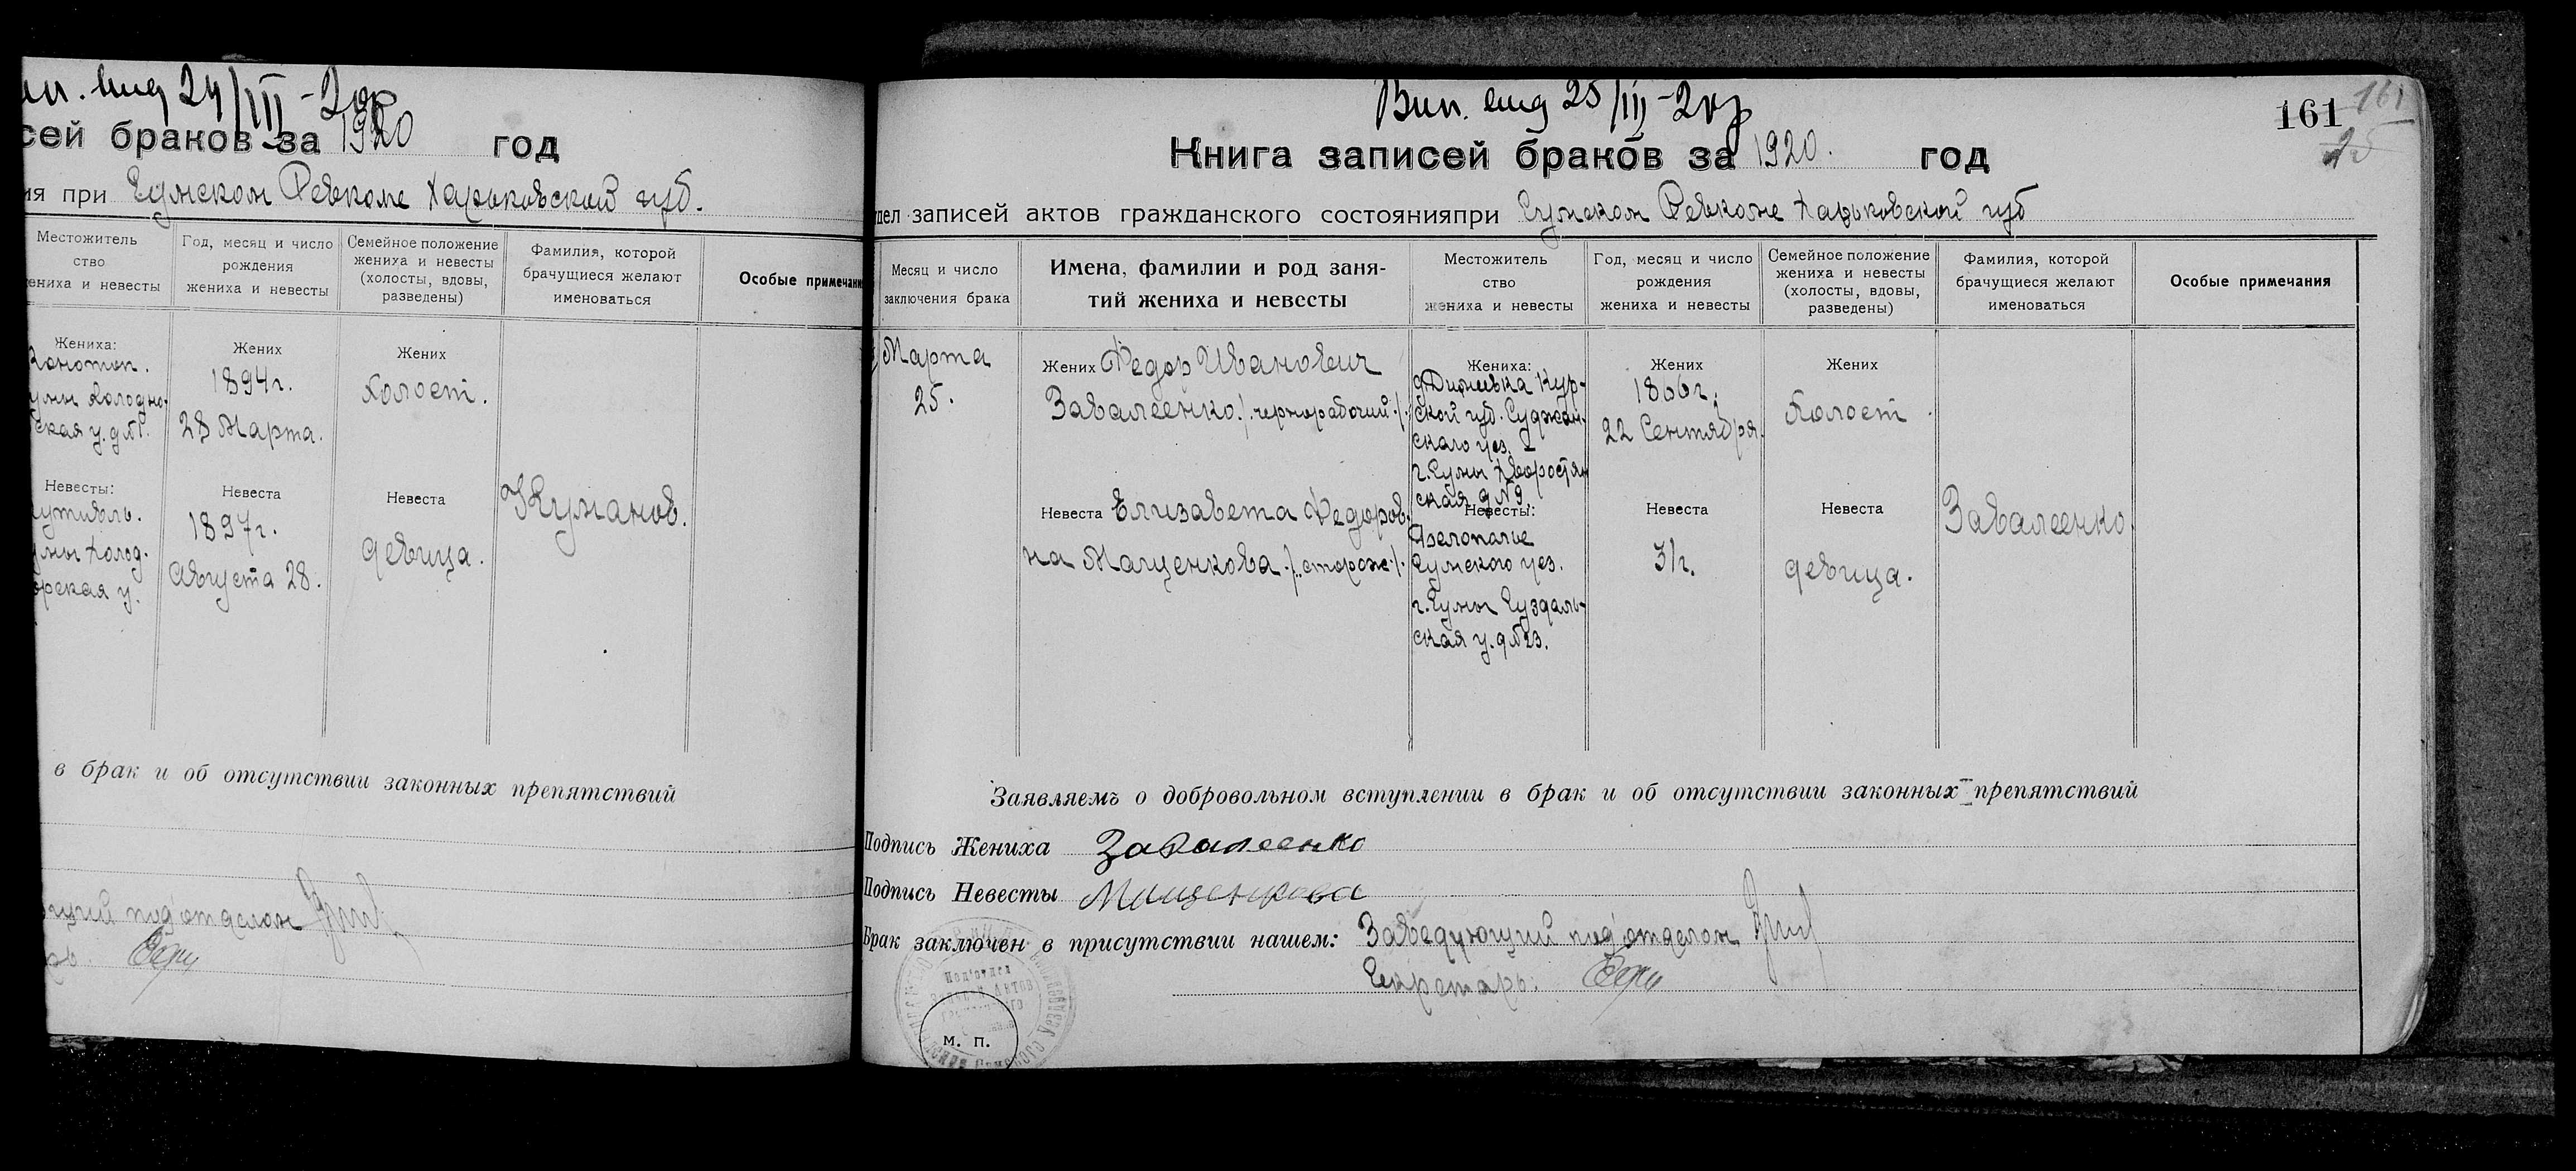 24/III-20р
сей браков за 1920 год
ия при Сумском Ревкоме Харьковской губ.
Местожитель
ство
жениха и невесты
Год, месяц и число
рождения
жениха и невесты
Семейное положение
жениха и невесты
(холосты, вдовы,
разведены)
Фамилия, которой
брачущиеся желают
именоваться
Особые примечания
Жениха:
Конотоп.
умы Холодно-
ская у. д№
Жених
1894г.
28 Марта.
Жених
Холост.
Невесты:
утивль.
умы Холод.
орская у.
Невеста
1897г.
Августа 28.
Невеста
девица.
Куманов.
в брак и об отсутствии законных препятствий
ющий под'отделом
рь
Вип. вид 25/III-20р
161
161
Книга записей браков за 1920. год
тдел записей актов гражданского состоянияпри Сумском Ревкоме Харьковской губ
Месяц и число
заключения брака
Имена, фамилии и род заня-
тий жениха и невесты
Местожитель
ство
жениха и невесты
Год, месяц и число
рождения
жениха и невесты
Семейное положение
жениха и невесты
(холосты, вдовы,
разведены)
Фамилия, которой
брачущиеся желают
именоваться
Особые примечания
Марта
25.
Жених Федор Иванович
Завалеенко /.чернорабочий./.
Невеста Елизавета Федоров-
на Мащенкова./.сторож./.
Жениха:
Кур-
ской губ. Суджан-
скаго уез.
г.Сумы Хворостян
ская д№9.
Невесты:
Белополье
Сумского уез.
г.Сумы Суздаль-
ская у. д№23.
Жених
1866г.
22 Сентября.
Невеста
31г.
Жених
Холост
Невеста
девица.
Завалеенко.
Заявляемъ о добровольном вступлении в брак и об отсутствии законных препятствий
Подпись Жениха Завалеенко
Подпись Невесты Мащенкова
Брак заключен в присутствии нашем: Заведующий под'отделом
Секретарь:
Под'отдел
Записи Актов
Гражданского
м. п.